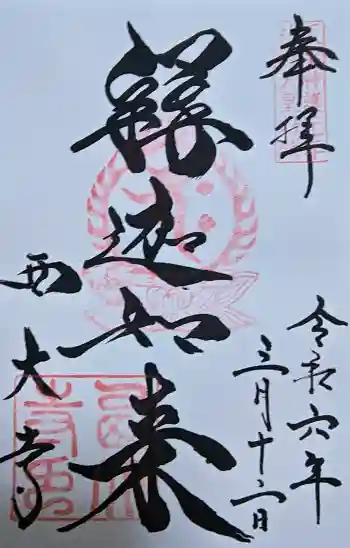 奉拝
令和六年
三月十六日
釋迦如来
西大寺